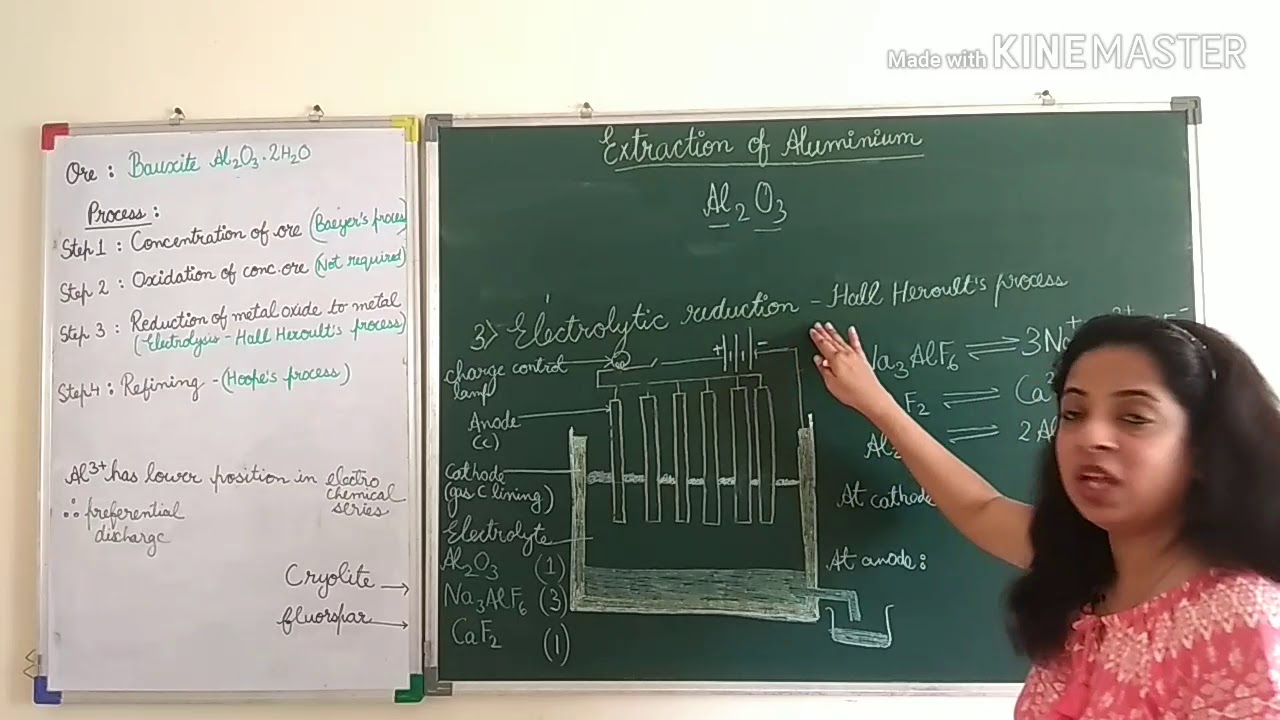 Made with KINEMASTER
Ore : Bauxite Al₂O₃·2H₂O
Process :
Step 1 : Concentration of ore (Baeyer's proces)
Step 2 : Oxidation of conc. ore (Not required)
Step 3 : Reduction of metal oxide to metal
(Electrolysis - Hall Heroult's process)
Step 4 : Refining - (Hoope's process)
Al³⁺ has lower position in electro
chemical
series
∴ preferential
discharge
Cryolite →
fluorspar →
Extraction of Aluminium
Al₂O₃
3) Electrolytic reduction - Hall Heroult's process
charge control
lamp
+ -
Anode
(C)
Cathode
(gas C lining)
Electrolyte
Al₂O₃ (1)
Na₃AlF₆ (3)
CaF₂ (1)
Na₃AlF₆ ⇌ 3Na⁺
F₂ ⇌ Ca²
Al₂ ⇌ 2Al
At cathode
At anode :